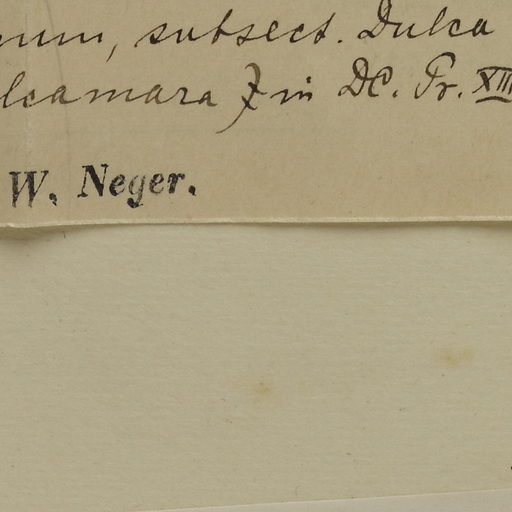 num, subsect. Dulca
lcamara) in DC. Pr. XIII
W. Neger.